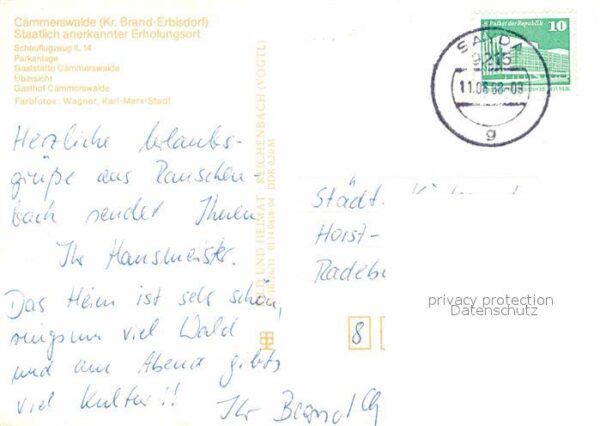 Cämmerswalde (Kr. Brand-Erbisdorf)
Staatlich anerkannter Erholungsort
Schauflugzeug IL 14
Parkanlage
Gaststätte Cämmerswalde
Übersicht
Gasthof Cämmerswalde
Farbfotos: Wagner, Karl-Marx-Stadt
Herzliche Urlaubs-
grüße aus Rauschen-
bach sendet Ihnen
Ihr Hausmeister.
Das Heim ist sehr schön,
ringsum viel Wald
und am Abend gibts
viel Kultur!!
Ihr
BILD UND HEIMAT REICHENBACH (VOGTL)
DDR 0,20 M
SAYDA
9215
11.08.88-09
g
Palast der Republik 10
Städt.
Horst-
Radeb
8
privacy protection
Datenschutz